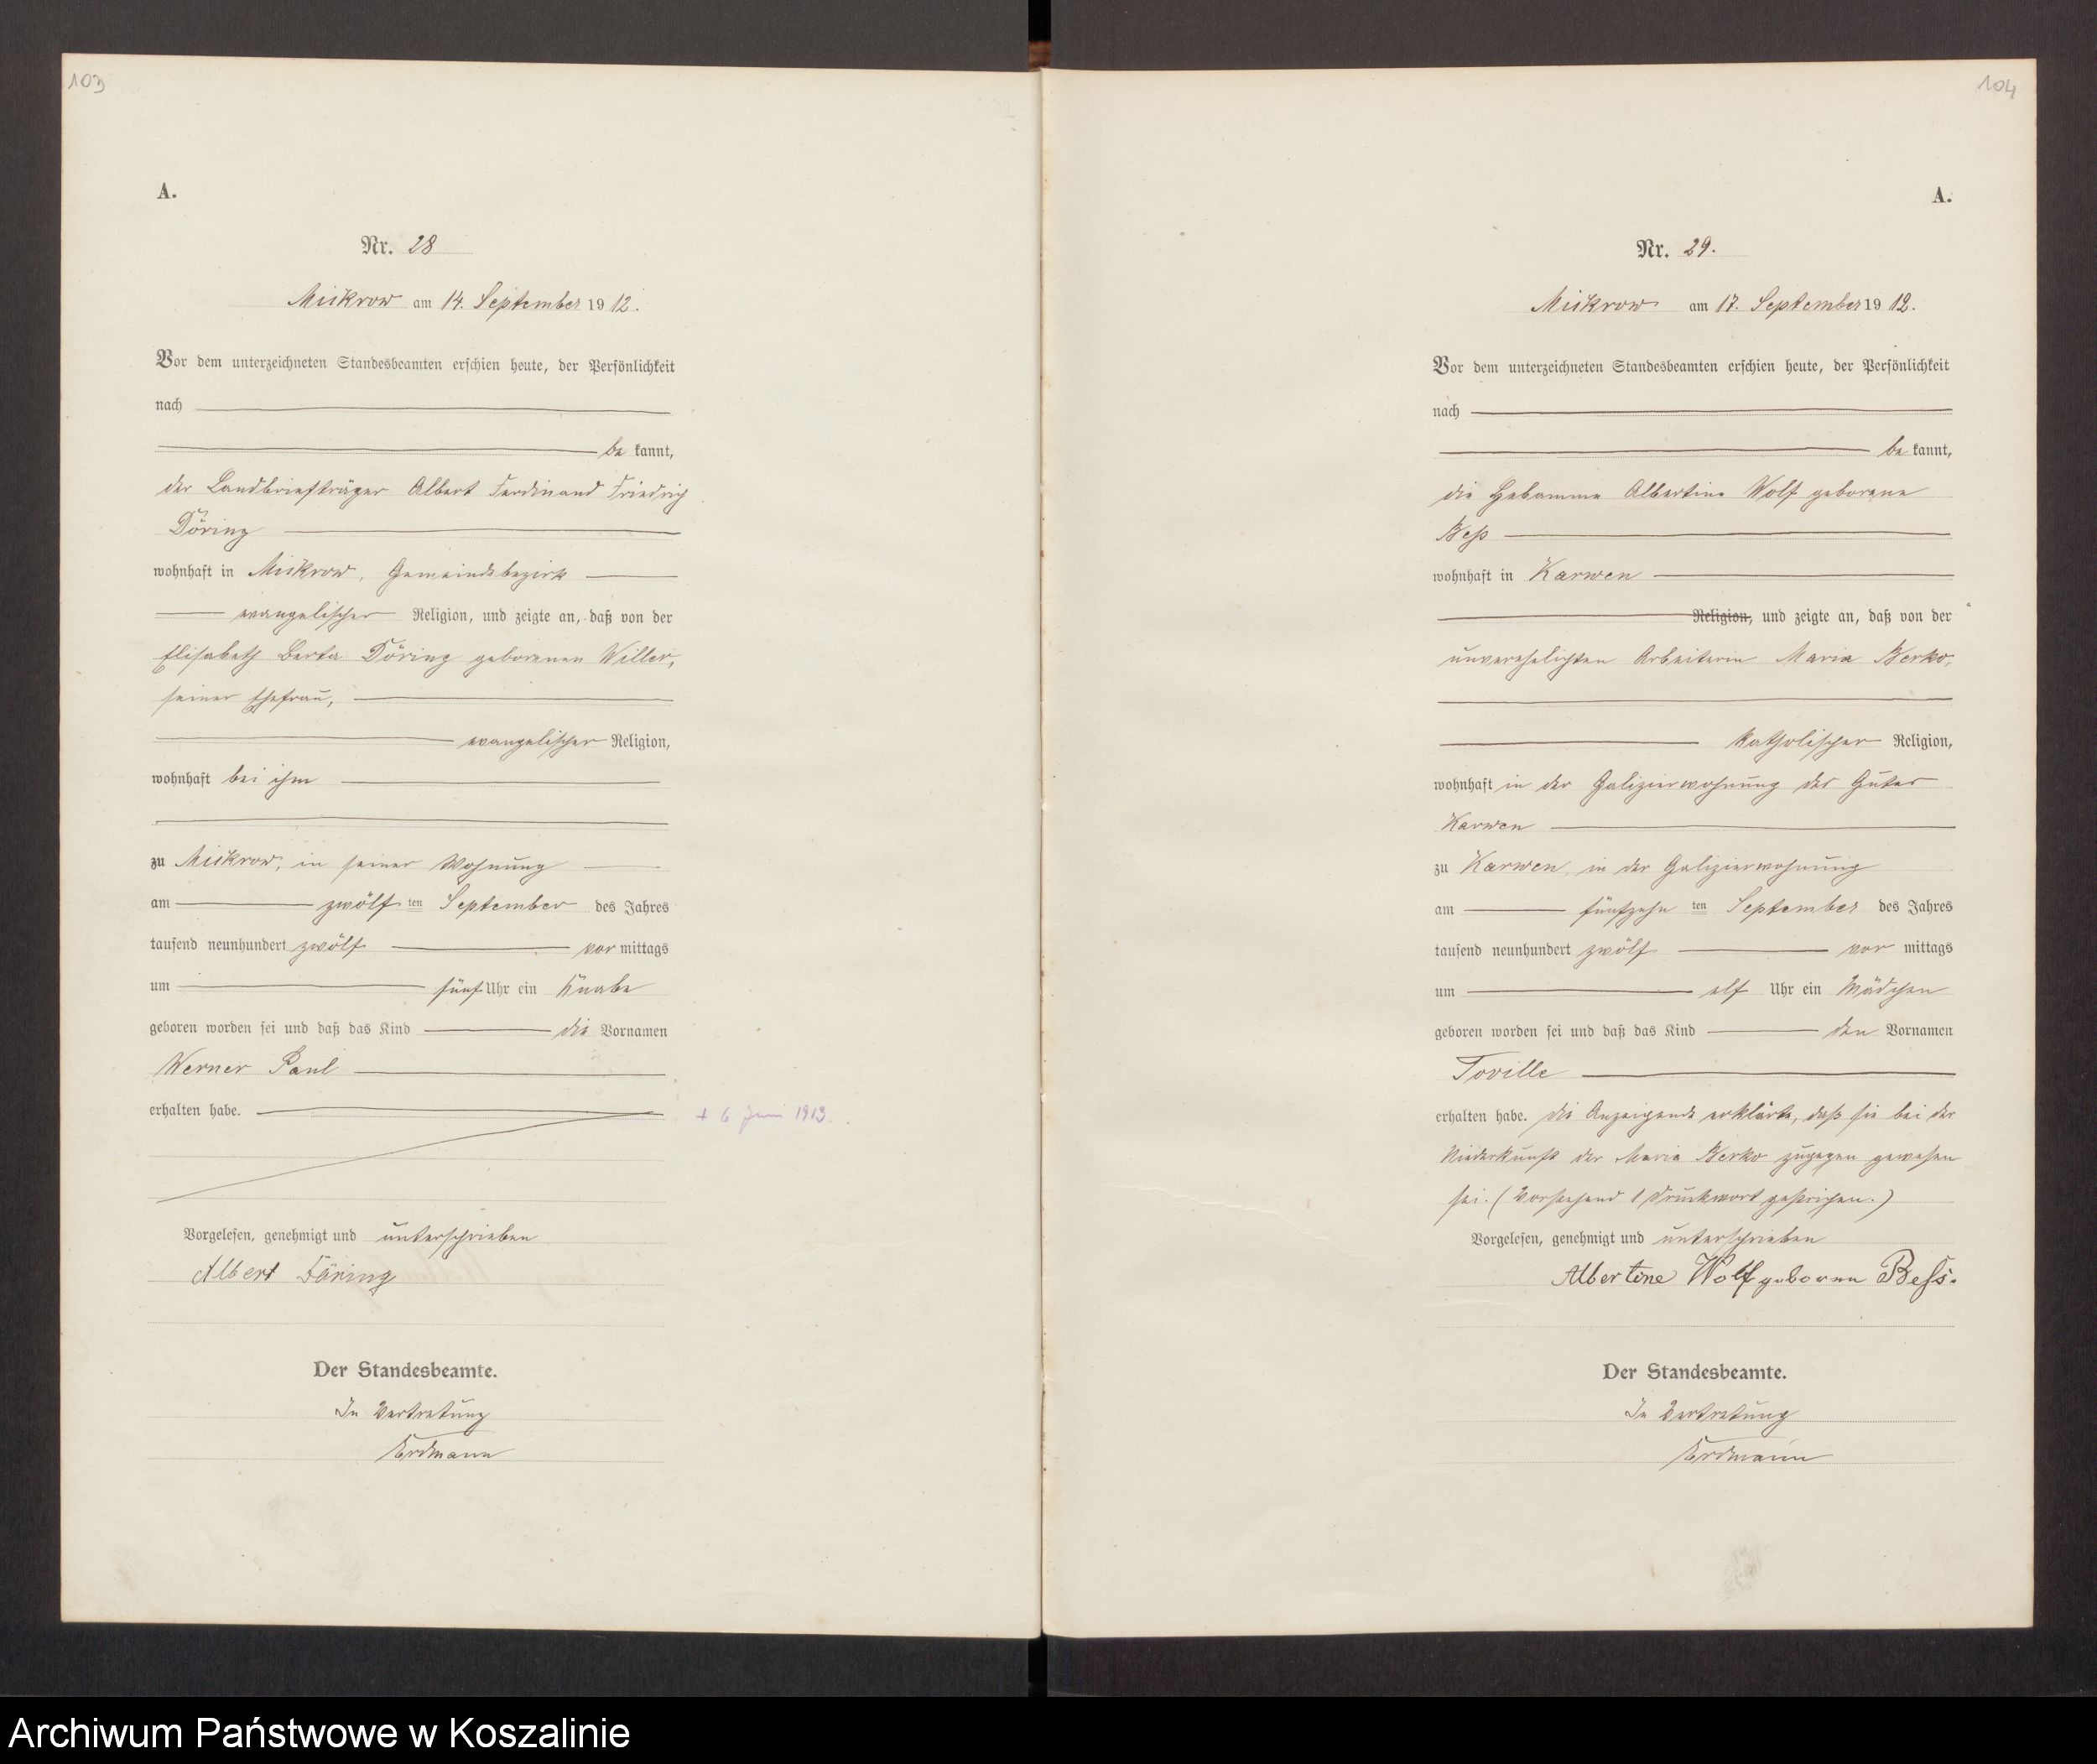 103
A.
Nr. 28
Mickrow am 14. September 1912.
Vor dem unterzeichneten Standesbeamten erschien heute, der Persönlichkeit
nach
be kannt,
der Landbriefträger Albert Ferdinand Friedrich
Döring
wohnhaft in Mickrow, Gemeindebezirk
evangelischer Religion, und zeigte an, daß von der
Elisabeth Berta Döring geborenen Willer,
seiner Ehefrau,
evangelischer Religion,
wohnhaft bei ihm
zu Mickrow, in seiner Wohnung
am zwölf ten September des Jahres
tausend neunhundert zwölf vor mittags
um fünf Uhr ein Knabe
geboren worden sei und daß das Kind die Vornamen
Werner Paul
erhalten habe.
+ 6. Juni 1913.
Vorgelesen, genehmigt und unterschrieben
Albert Döring
Der Standesbeamte.
In Vertretung
Erdmann
104
A.
Nr. 29.
Mickrow am 17. September 1912.
Vor dem unterzeichneten Standesbeamten erschien heute, der Persönlichkeit
nach
be kannt,
die Hebamme Albertine Wolf geborene
Beß
wohnhaft in Karwen
Religion, und zeigte an, daß von der
unverehelichten Arbeiterin Maria Berko,
katholischer Religion,
wohnhaft in der Galizierwohnung des Gutes
Karwen
zu Karwen, in der Galizierwohnung
am fünfzehn ten September des Jahres
tausend neunhundert zwölf vor mittags
um elf Uhr ein Mädchen
geboren worden sei und daß das Kind den Vornamen
Toville
erhalten habe. Die Anzeigende erklärte, daß sie bei der
Niederkunft der Maria Berko zugegen gewesen
sei. (Vorstehend 1 Druckwort gestrichen.)
Vorgelesen, genehmigt und unterschrieben
Albertine Wolf geboren Beß.
Der Standesbeamte.
In Vertretung
Erdmann
Archiwum Państwowe w Koszalinie